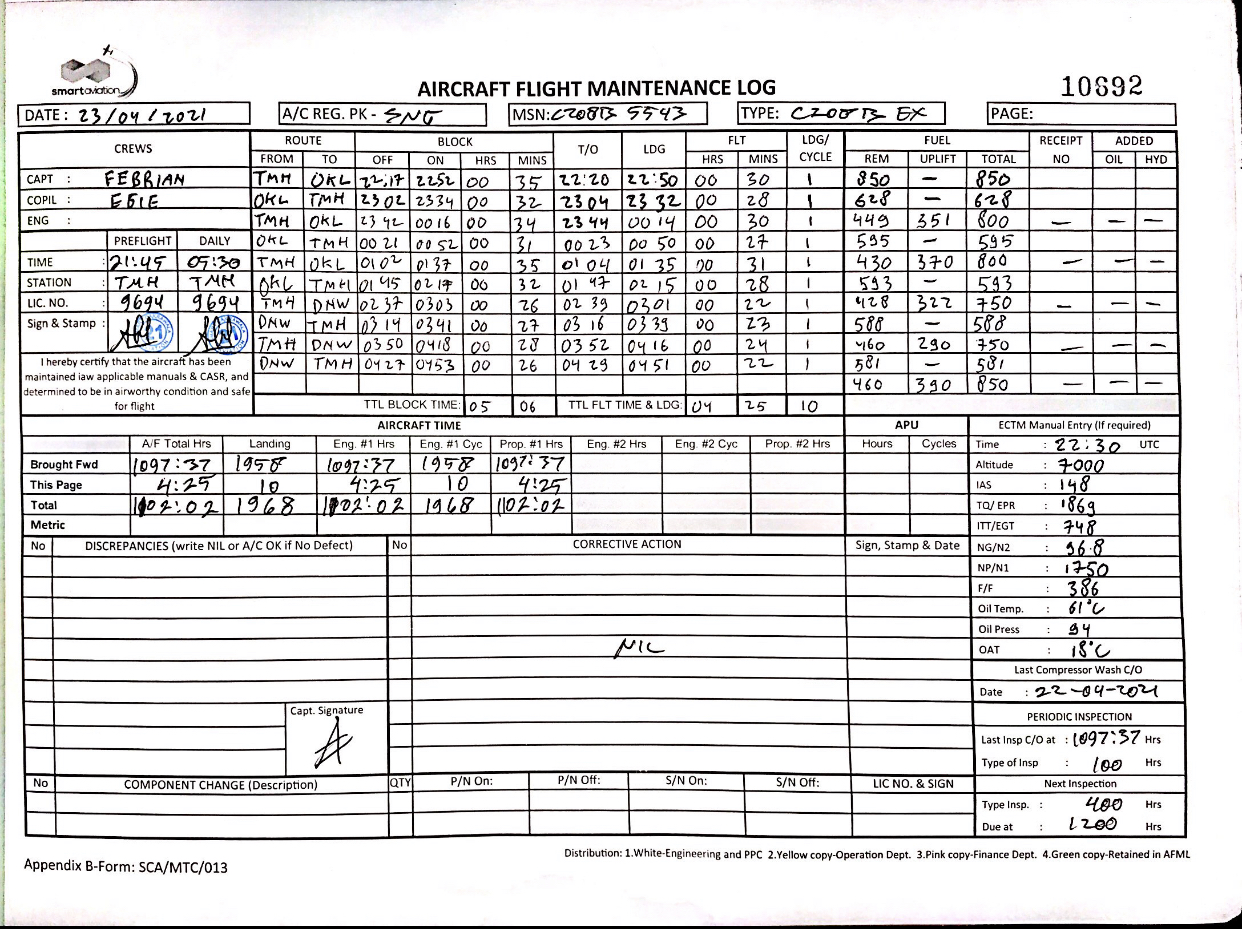 smartaviation
AIRCRAFT FLIGHT MAINTENANCE LOG
10692
DATE : 23/04/2021 A/C REG. PK - SNG MSN: C208B 5543 TYPE: C208B EX PAGE:
CREWS ROUTE BLOCK T/O LDG FLT LDG/ CYCLE FUEL RECEIPT NO ADDED
FROM TO OFF ON HRS MINS HRS MINS REM UPLIFT TOTAL OIL HYD
CAPT : FEBRIAN TMH OKL 22,17 2252 00 35 22:20 22:50 00 30 1 850 — 850
COPIL : EGIE OKL TMH 23 02 2334 00 32 23 04 23 32 00 28 1 628 — 628
ENG : TMH OKL 23 42 00 16 00 34 23 44 00 14 00 30 1 449 351 800 — — —
PREFLIGHT DAILY OKL TMH 00 21 00 52 00 31 00 23 00 50 00 27 1 595 — 595
TIME : 21:45 05:30 TMH OKL 01 02 01 37 00 35 01 04 01 35 00 31 1 430 370 800 — — —
STATION : TMH TMH OKL TMH 01 45 02 17 00 32 01 47 02 15 00 28 1 593 — 593
LIC. NO. : 9694 9694 TMH DNW 02 37 0303 00 26 02 39 0301 00 22 1 428 322 750 — — —
Sign & Stamp : DNW TMH 03 14 0341 00 27 03 16 03 39 00 23 1 588 — 588
TMH DNW 03 50 0418 00 28 03 52 04 16 00 24 1 460 290 750 — — —
DNW TMH 04 27 0453 00 26 04 29 04 51 00 22 1 581 — 581
460 390 850 — — —
I hereby certify that the aircraft has been
maintained iaw applicable manuals & CASR, and
determined to be in airworthy condition and safe
for flight
TTL BLOCK TIME: 05 06 TTL FLT TIME & LDG: 04 25 10
AIRCRAFT TIME APU ECTM Manual Entry (If required)
A/F Total Hrs Landing Eng. #1 Hrs Eng. #1 Cyc Prop. #1 Hrs Eng. #2 Hrs Eng. #2 Cyc Prop. #2 Hrs Hours Cycles Time : 22:30 UTC
Brought Fwd 1097:37 1958 1097:37 1958 1097:37 Altitude : 7000
This Page 4:25 10 4:25 10 4:25 IAS : 148
Total 1102:02 1968 1102:02 1968 1102:02 TQ/ EPR : 1869
Metric ITT/EGT : 748
No DISCREPANCIES (write NIL or A/C OK if No Defect) No CORRECTIVE ACTION Sign, Stamp & Date NG/N2 : 96.8
NP/N1 : 1750
F/F : 386
Oil Temp. : 61°C
Oil Press : 94
NIL OAT : 18°C
Last Compressor Wash C/O
Date : 22-04-2021
Capt. Signature
PERIODIC INSPECTION
Last Insp C/O at : 1097:37 Hrs
Type of Insp : 100 Hrs
No COMPONENT CHANGE (Description) QTY P/N On: P/N Off: S/N On: S/N Off: LIC NO. & SIGN Next Inspection
Type Insp. : 400 Hrs
Due at : 1200 Hrs
Distribution: 1.White-Engineering and PPC 2.Yellow copy-Operation Dept. 3.Pink copy-Finance Dept. 4.Green copy-Retained in AFML
Appendix B-Form: SCA/MTC/013